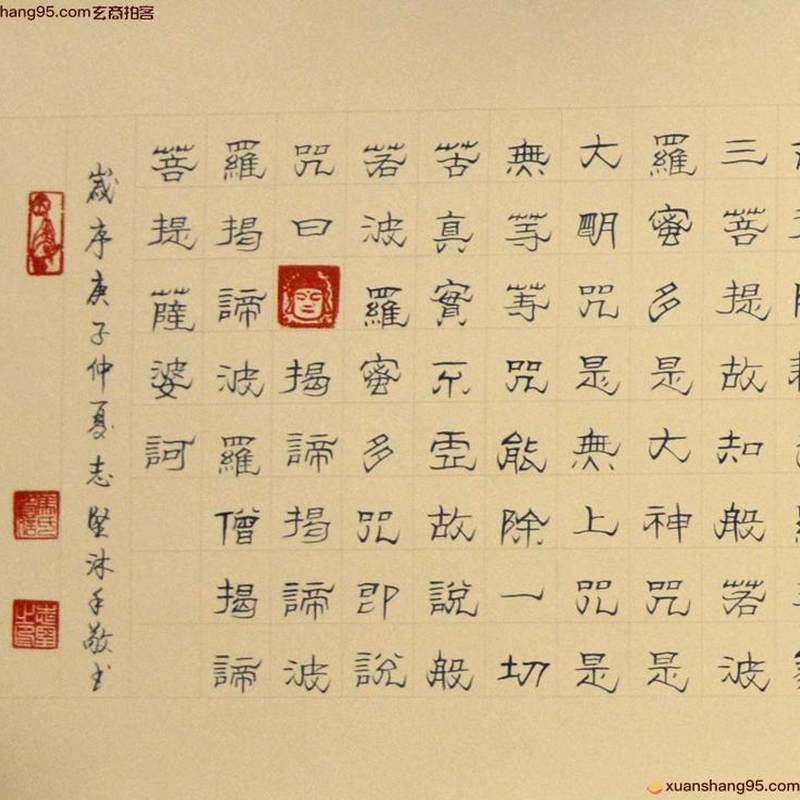 hang95.com玄商拍客
三菩提故知般若波
羅蜜多是大神咒是
大明咒是無上咒是
無等等咒能除一切
苦真實不虛故說般
若波羅蜜多咒即說
咒曰揭諦揭諦波
羅揭諦波羅僧揭諦
菩提薩婆訶
歲序庚子仲夏志堅沐手敬书
xuanshang95.com